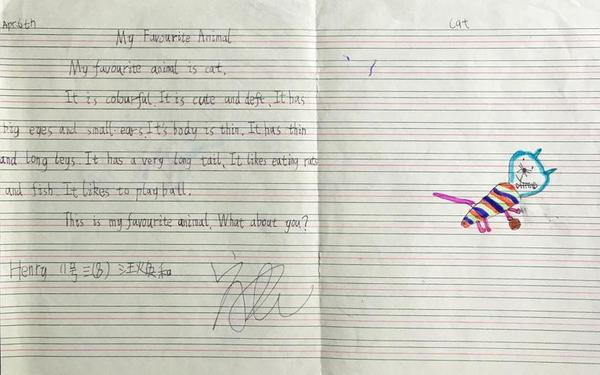 Apr.6th
My Favourite Animal
My favourite animal is cat.
It is colourful. It is cute and deft. It has
big eyes and small ears. It's body is thin. It has thin
and long legs. It has a very long tail. It likes eating rats
and fish. It likes to play ball.
This is my favourite animal. What about you?
Henry 11号 三(8) 汪焕和
cat